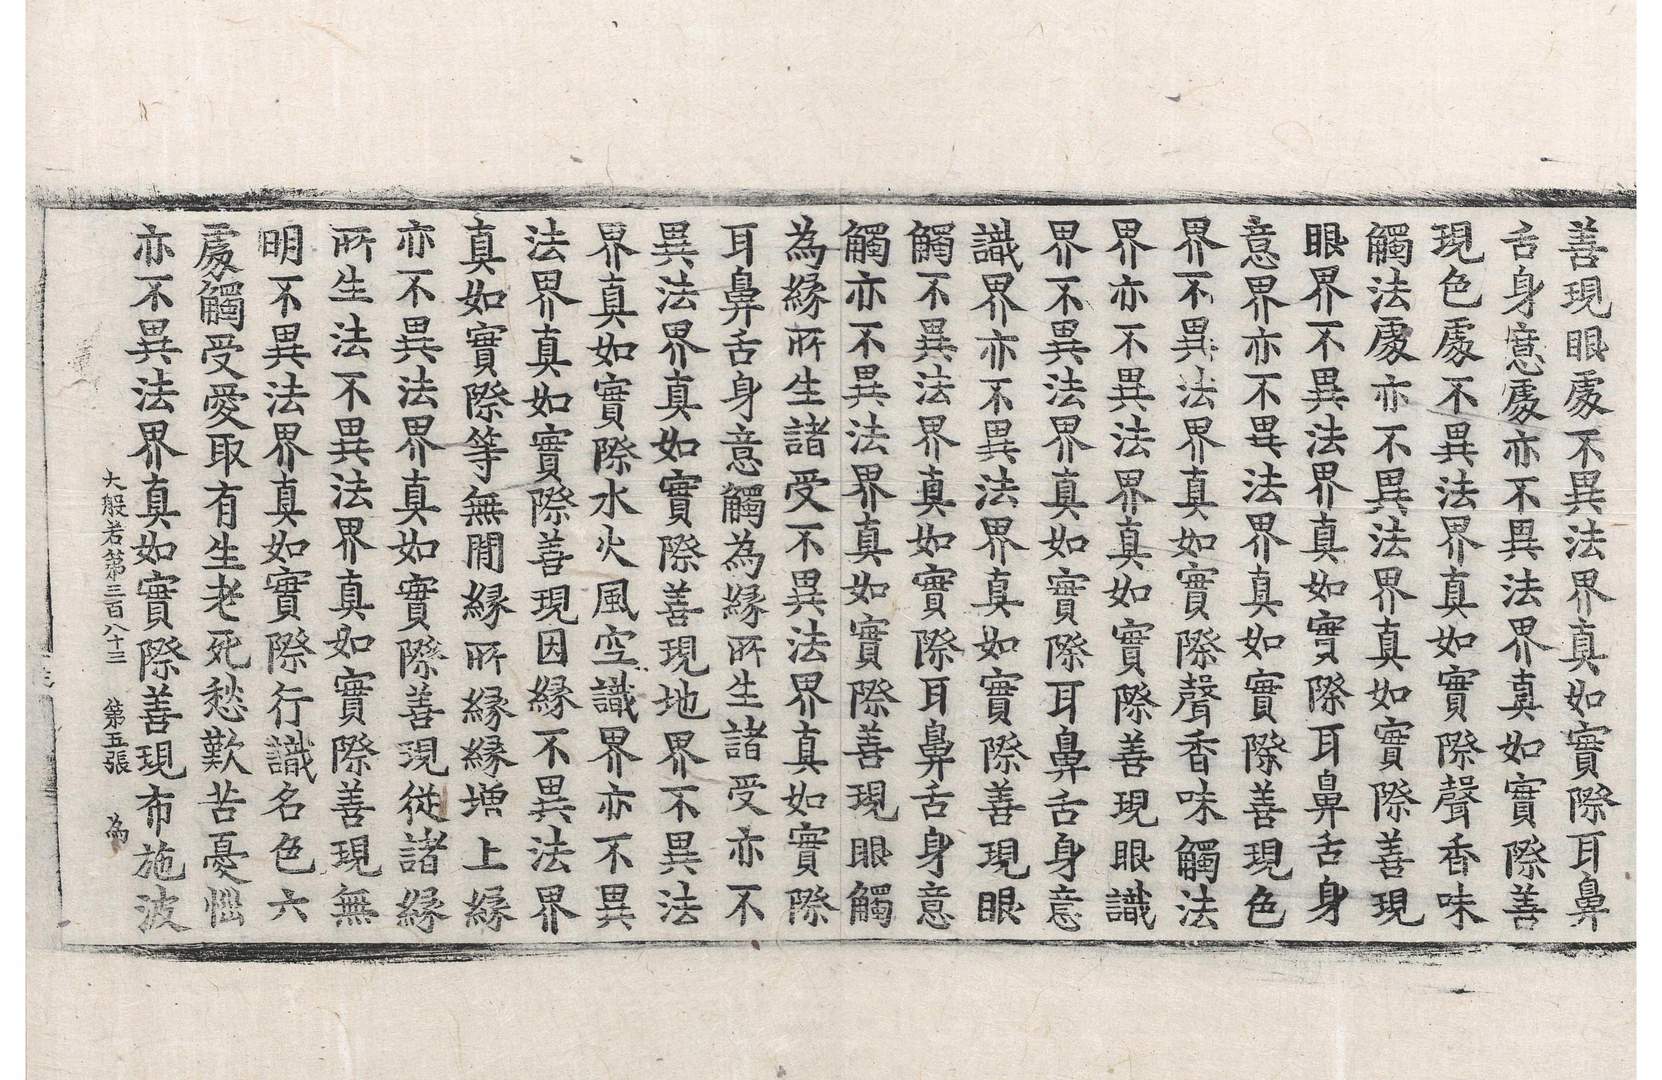 善現眼處不異法界真如實際耳鼻
舌身意處亦不異法界真如實際善
現色處不異法界真如實際聲香味
觸法處亦不異法界真如實際善現
眼界不異法界真如實際耳鼻舌身
意界亦不異法界真如實際善現色
界不異法界真如實際聲香味觸法
界亦不異法界真如實際善現眼識
界不異法界真如實際耳鼻舌身意
識界亦不異法界真如實際善現眼
觸不異法界真如實際耳鼻舌身意
觸亦不異法界真如實際善現眼觸
為緣所生諸受不異法界真如實際
耳鼻舌身意觸為緣所生諸受亦不
異法界真如實際善現地界不異法
界真如實際水火風空識界亦不異
法界真如實際善現因緣不異法界
真如實際等無間緣所緣緣增上緣
亦不異法界真如實際善現從諸緣
所生法不異法界真如實際善現無
明不異法界真如實際行識名色六
處觸受愛取有生老死愁歎苦憂惱
亦不異法界真如實際善現布施波
大般若第三百八十三 第五張 為